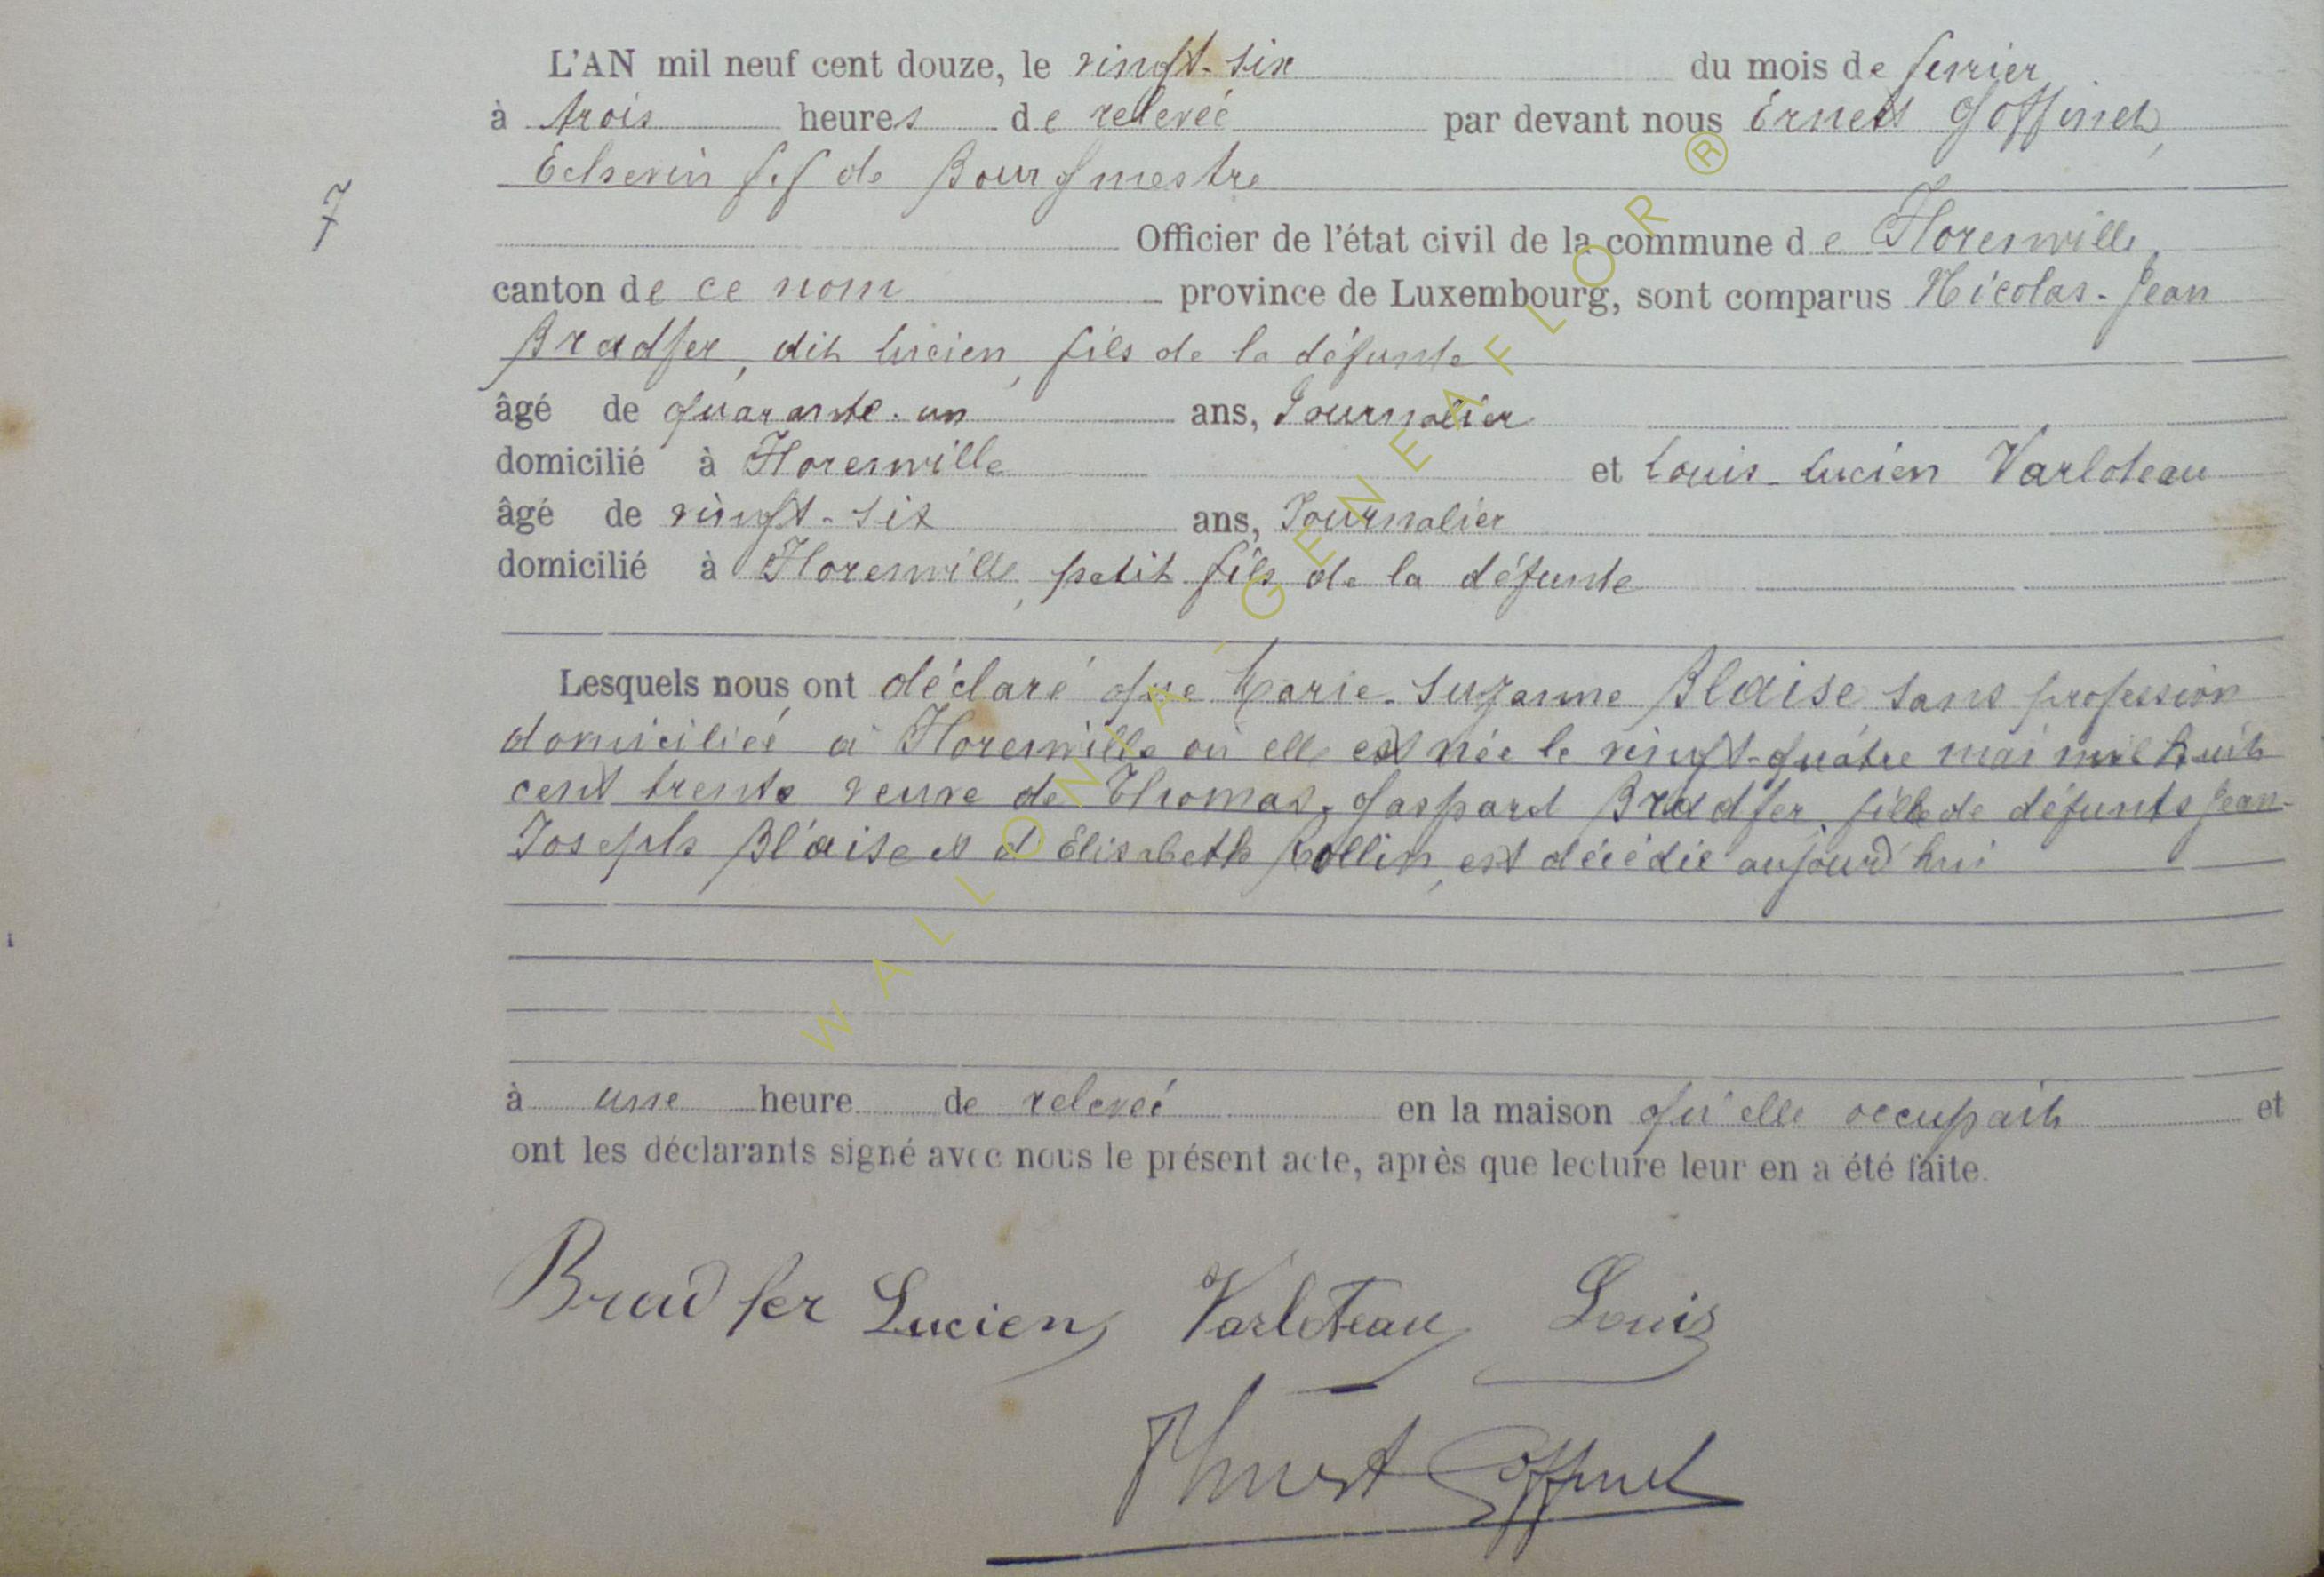 L'AN mil neuf cent douze, le vingt-six du mois de fevrier
à trois heures de relevée par devant nous Ernest Goffinet,
Echevin f.f de Bourgmestre
7
Officier de l'état civil de la commune de Florenville,
canton de ce nom province de Luxembourg, sont comparus Nicolas-Jean
Bradfer, dit Lucien, fils de la défunte
âgé de quarante-un ans, Journalier
domicilié à Florenville et Louis-Lucien Varloteau
âgé de vingt-six ans, Journalier
domicilié à Florenville, petit fils de la défunte
Lesquels nous ont déclaré que Marie-Suzanne Blaise sans profession
domiciliée à Florenville où elle est née le vingt-quatre mai mil huit
cent trente veuve de Thomas-Gaspard Bradfer, fille de défunts Jean-
Joseph Blaise et d'Elisabeth Collin, est décédée aujourd'hui
à une heure de relevée en la maison qu'elle occupait et
ont les déclarants signé avec nous le présent acte, après que lecture leur en a été faite.
Bradfer Lucien Varloteau Louis
Ernest Goffinet
WALLONIA - GENEAFLOR ®